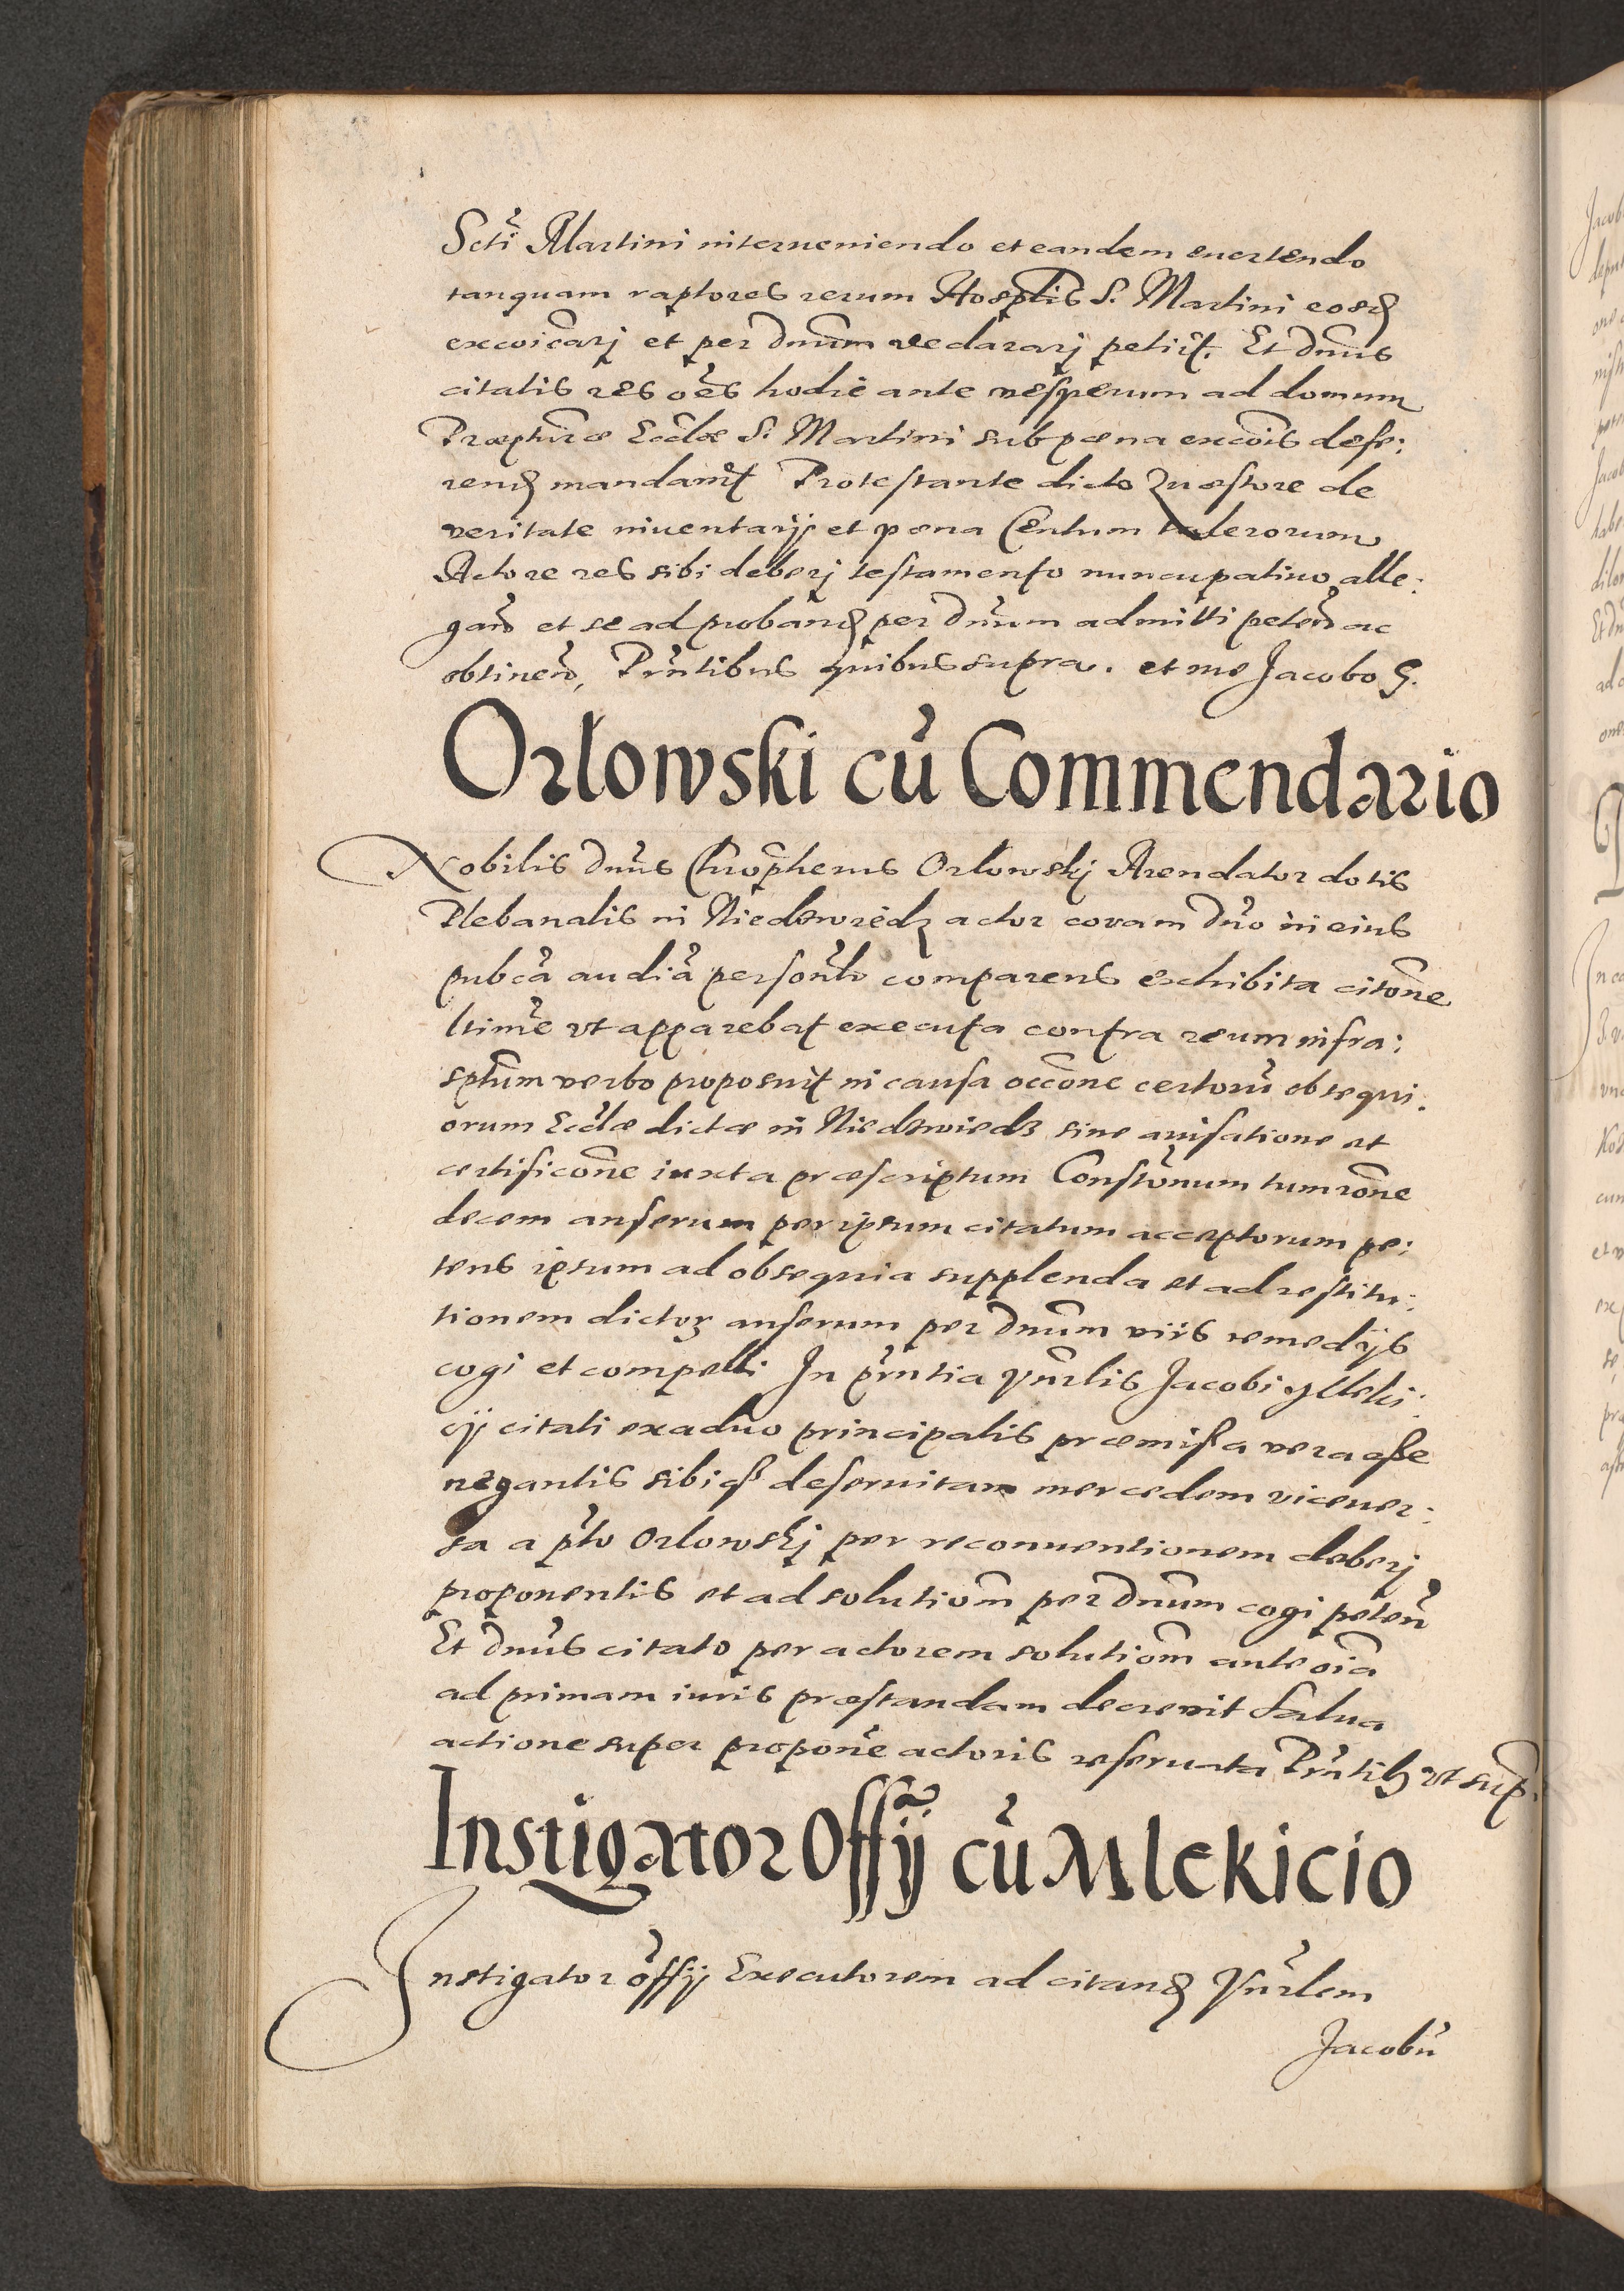 Scti Martini interueniendo et eandem euertendo
tanquam raptores rerum Hosptlis S. Martini eosd
excoicarj et per dnum declararj petijt. Et dnus
citatis res oes hodie ante vesperum ad domum
Præpturæ Eccliæ S. Martini sub pæna excois defe:
rend mandauit Protestante dicto Quæstore de
veritate inuentarij et pena Centum talerorum
Actore res sibi deberj testamento nuncupatiuo alle:
gan et se ad proband per dnum admitti peten ac
obtinen, Pntibus quibus supra. et me Jacobo G.
Orlowski cū Commendario
Nobilis dnus Chrophorus Orlowskj Arendator dotis
Plebanalis in Niedzwiedz actor coram dno in eius
pubca audia personlr comparens exhibita citone
ltime vt apparebat executa contra reum infra:
sptum verbo proposuit in causa occone certorū obsequi:
orum Eccliæ dictæ in Niedzwiedz sine auisatione et
certificone iuxta præscriptum Constonum tum rone
decem anserum per ipsum citatum acceptorum pe:
tens ipsum ad obsequia supplenda et ad restitu:
tionem dictor anserum per dnum viis remedijs
cogi et compelli. In pntia Vnrlis Jacobi Mleki:
cij citati ex aduo principalis præmissa vera esse
negantis sibique deseruitam mercedem viceuer:
sa a pto Orlowskj per reconuentionem deberj
proponentis et ad solutiom per dnum cogi peten
Et dnus citato per actorem solutiom ante oia
ad primam iuris præstandam decreuit Salua
actione super propone actoris reseruata Pntib vt sup.
Instigator Offij cū Mlekicio
Instigator offij Executorem ad citand Vnrlem
Jacobū